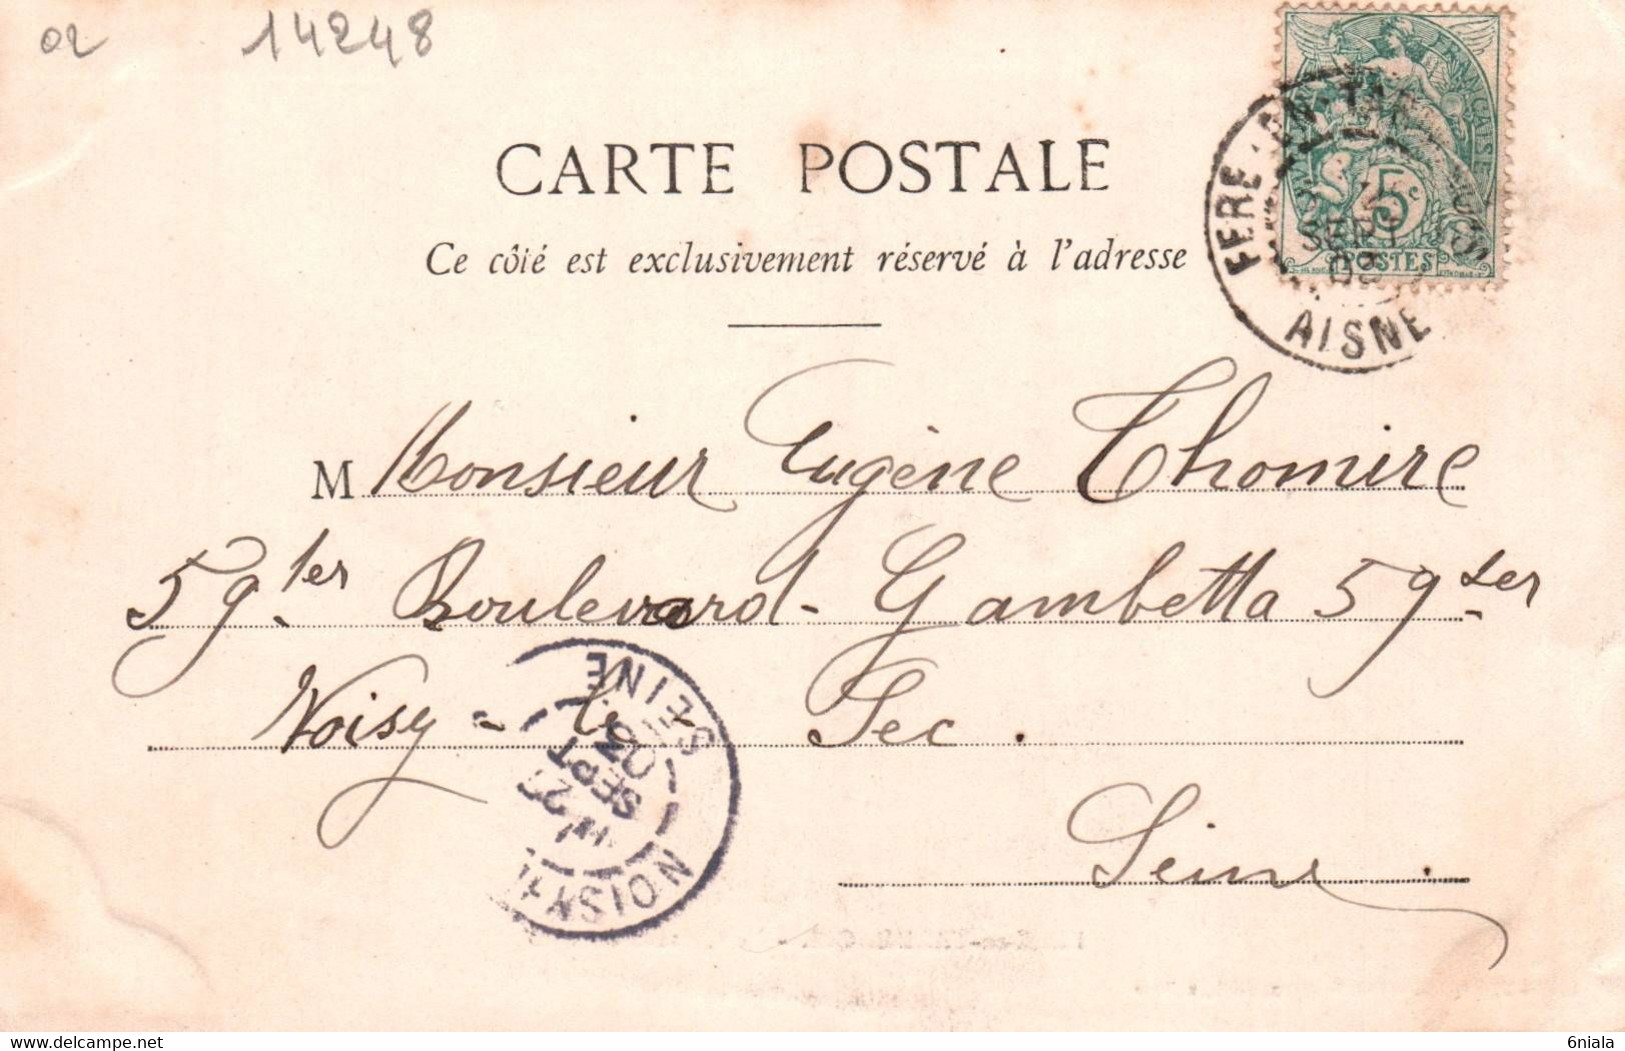 02 14248
CARTE POSTALE
Ce côté est exclusivement réservé à l'adresse
FERE-EN-TAR
SEPT
03
AISNE
FRANÇAISE
5c
POSTES
M Monsieur Eugène Thomire
59ter Boulevard Gambetta 59ter
Noisy-le-Sec.
Seine.
NOISY-L
25
SEPT
03
SEINE
6niala